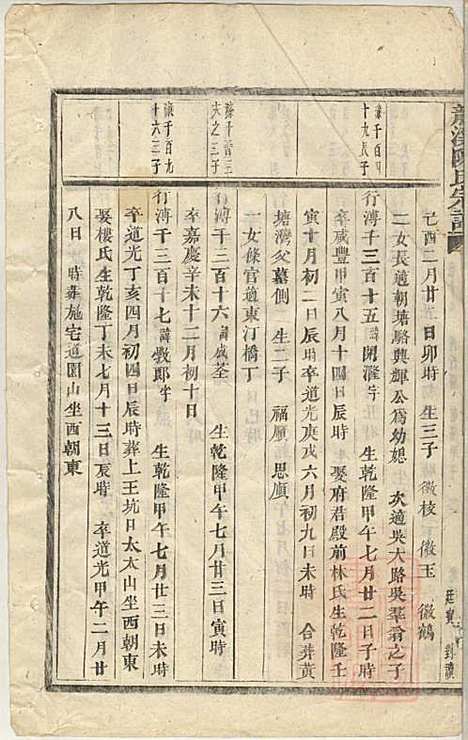 龍溪陳氏宗譜
己酉二月廿三日卯時 生三子 徽棱 徽玉 徽鶴
二女長適朝塘駱興輝公爲幼媳 次適吳大路吳羣翁之子
濂千百四十九長子
行溥千三百十五諱開 字 生乾隆甲午七月廿二日子時
卒咸豐甲寅八月十四日辰時 娶府君殿前林氏生乾隆壬
寅十月初二日辰時卒道光庚戌六月初九日未時 合葬黃
塘灣父墓側 生二子 福 思
一女條官適東汀橋丁
濂千百三 之三子
行溥千三百十六諱成荃 生乾隆甲午七月廿三日寅時
卒嘉慶辛未十二月初十日
濂千百九十六三子
行溥千三百十七諱 郎字 生乾隆甲午七月廿三日未時
卒道光丁亥四月初四日辰時葬上王坑日太太山坐西朝東
娶樓氏生乾隆丁未七月十三日亥時 卒道光甲午二月廿
八日 時葬施宅道園山坐西朝東